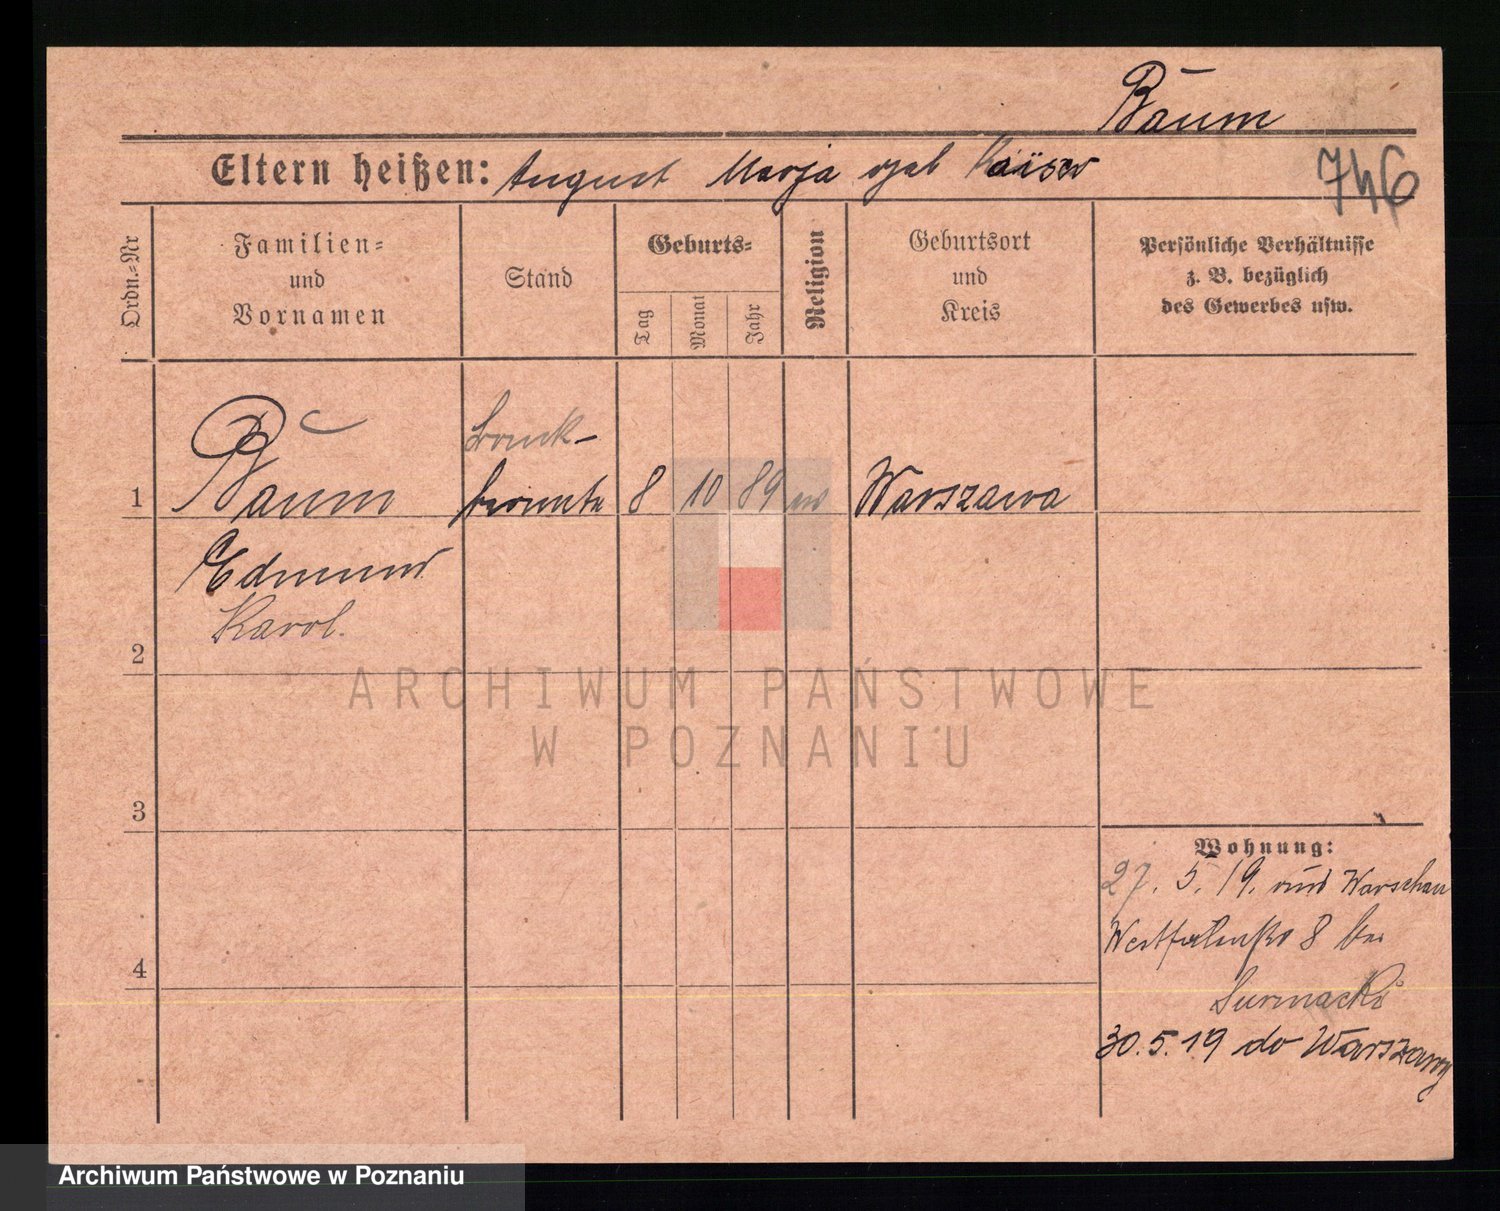 Baum
Eltern heißen: August Marja geb Kaiser
746
Ordn.=Nr
Familien=
und
Vornamen
Stand
Geburts=
Tag
Monat
Jahr
Religion
Geburtsort
und
Kreis
Persönliche Verhältnisse
z. B. bezüglich
des Gewerbes usw.
1
Baum
Bank-
beamte
8
10
89
Warszawa
Edmund
Karol.
2
3
4
Wohnung:
27. 5. 19. aus Warschau
8 bei
Surmacki
30.5.19 do Warszawy
ARCHIWUM PAŃSTWOWE
W POZNANIU
Archiwum Państwowe w Poznaniu